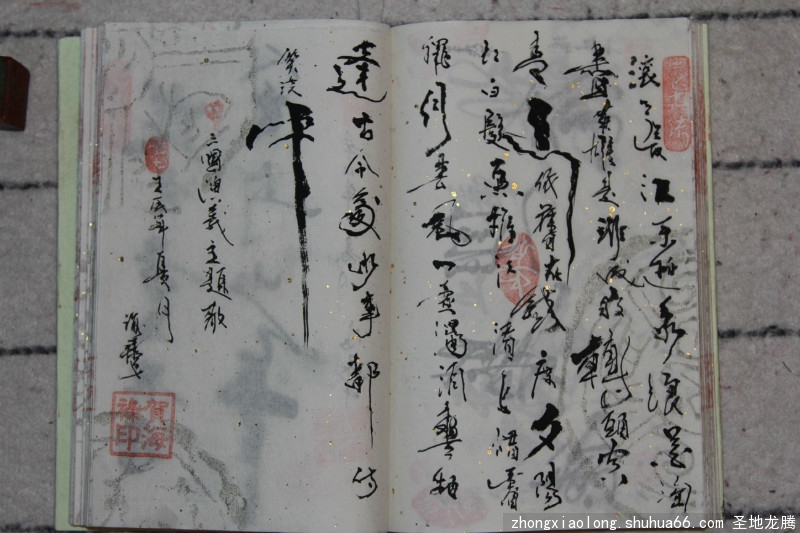 滚滚長江东逝水浪花淘
盡英雄是非成敗轉頭空
青山依舊在幾度夕陽
红白髮漁樵江渚上惯看
秋月春風一壺濁酒喜相
逢古今多少事都付
笑谈
中
三國演義主題歌
壬辰年夏月
賀海
印
zhongxiaolong.shuhua66.com 圣地龙腾